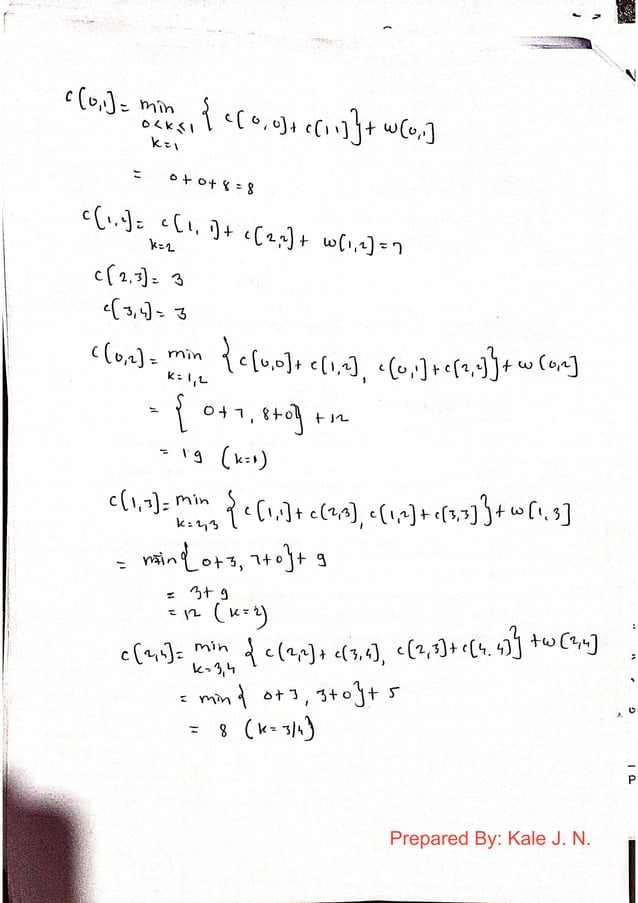 c[0,1]= min { c[0,0]+ c[1,1]}+ w[0,1]
0<k≤1
k=1
= 0+0+8=8
c[1,2]= c[1,1]+ c[2,2]+ w[1,2]=7
k=2
c[2,3]= 3
c[3,4]= 3
c[0,2]= min { c[0,0]+ c[1,2], c[0,1]+c[2,2]}+w[0,2]
k=1,2
= { 0+7, 8+0} +12
= 19 (k=1)
c[1,3]= min { c[1,1]+c[2,3], c[1,2]+c[3,3]}+w[1,3]
k=2,3
= min{ 0+3, 7+0}+ 9
= 3+9
=12 (k=2)
c[2,4]= min { c[2,2]+ c[3,4], c[2,3]+c[4,4]} +w[2,4]
k=3,4
= min{ 0+3, 3+0}+ 5
= 8 (k=3/4)
P
Prepared By: Kale J. N.